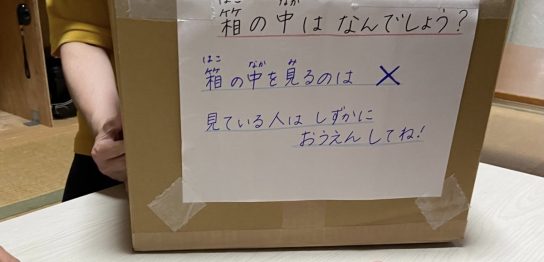 箱の中はなんでしょう?
箱の中を見るのは ×
見ている人は しずかに
おうえんしてね!